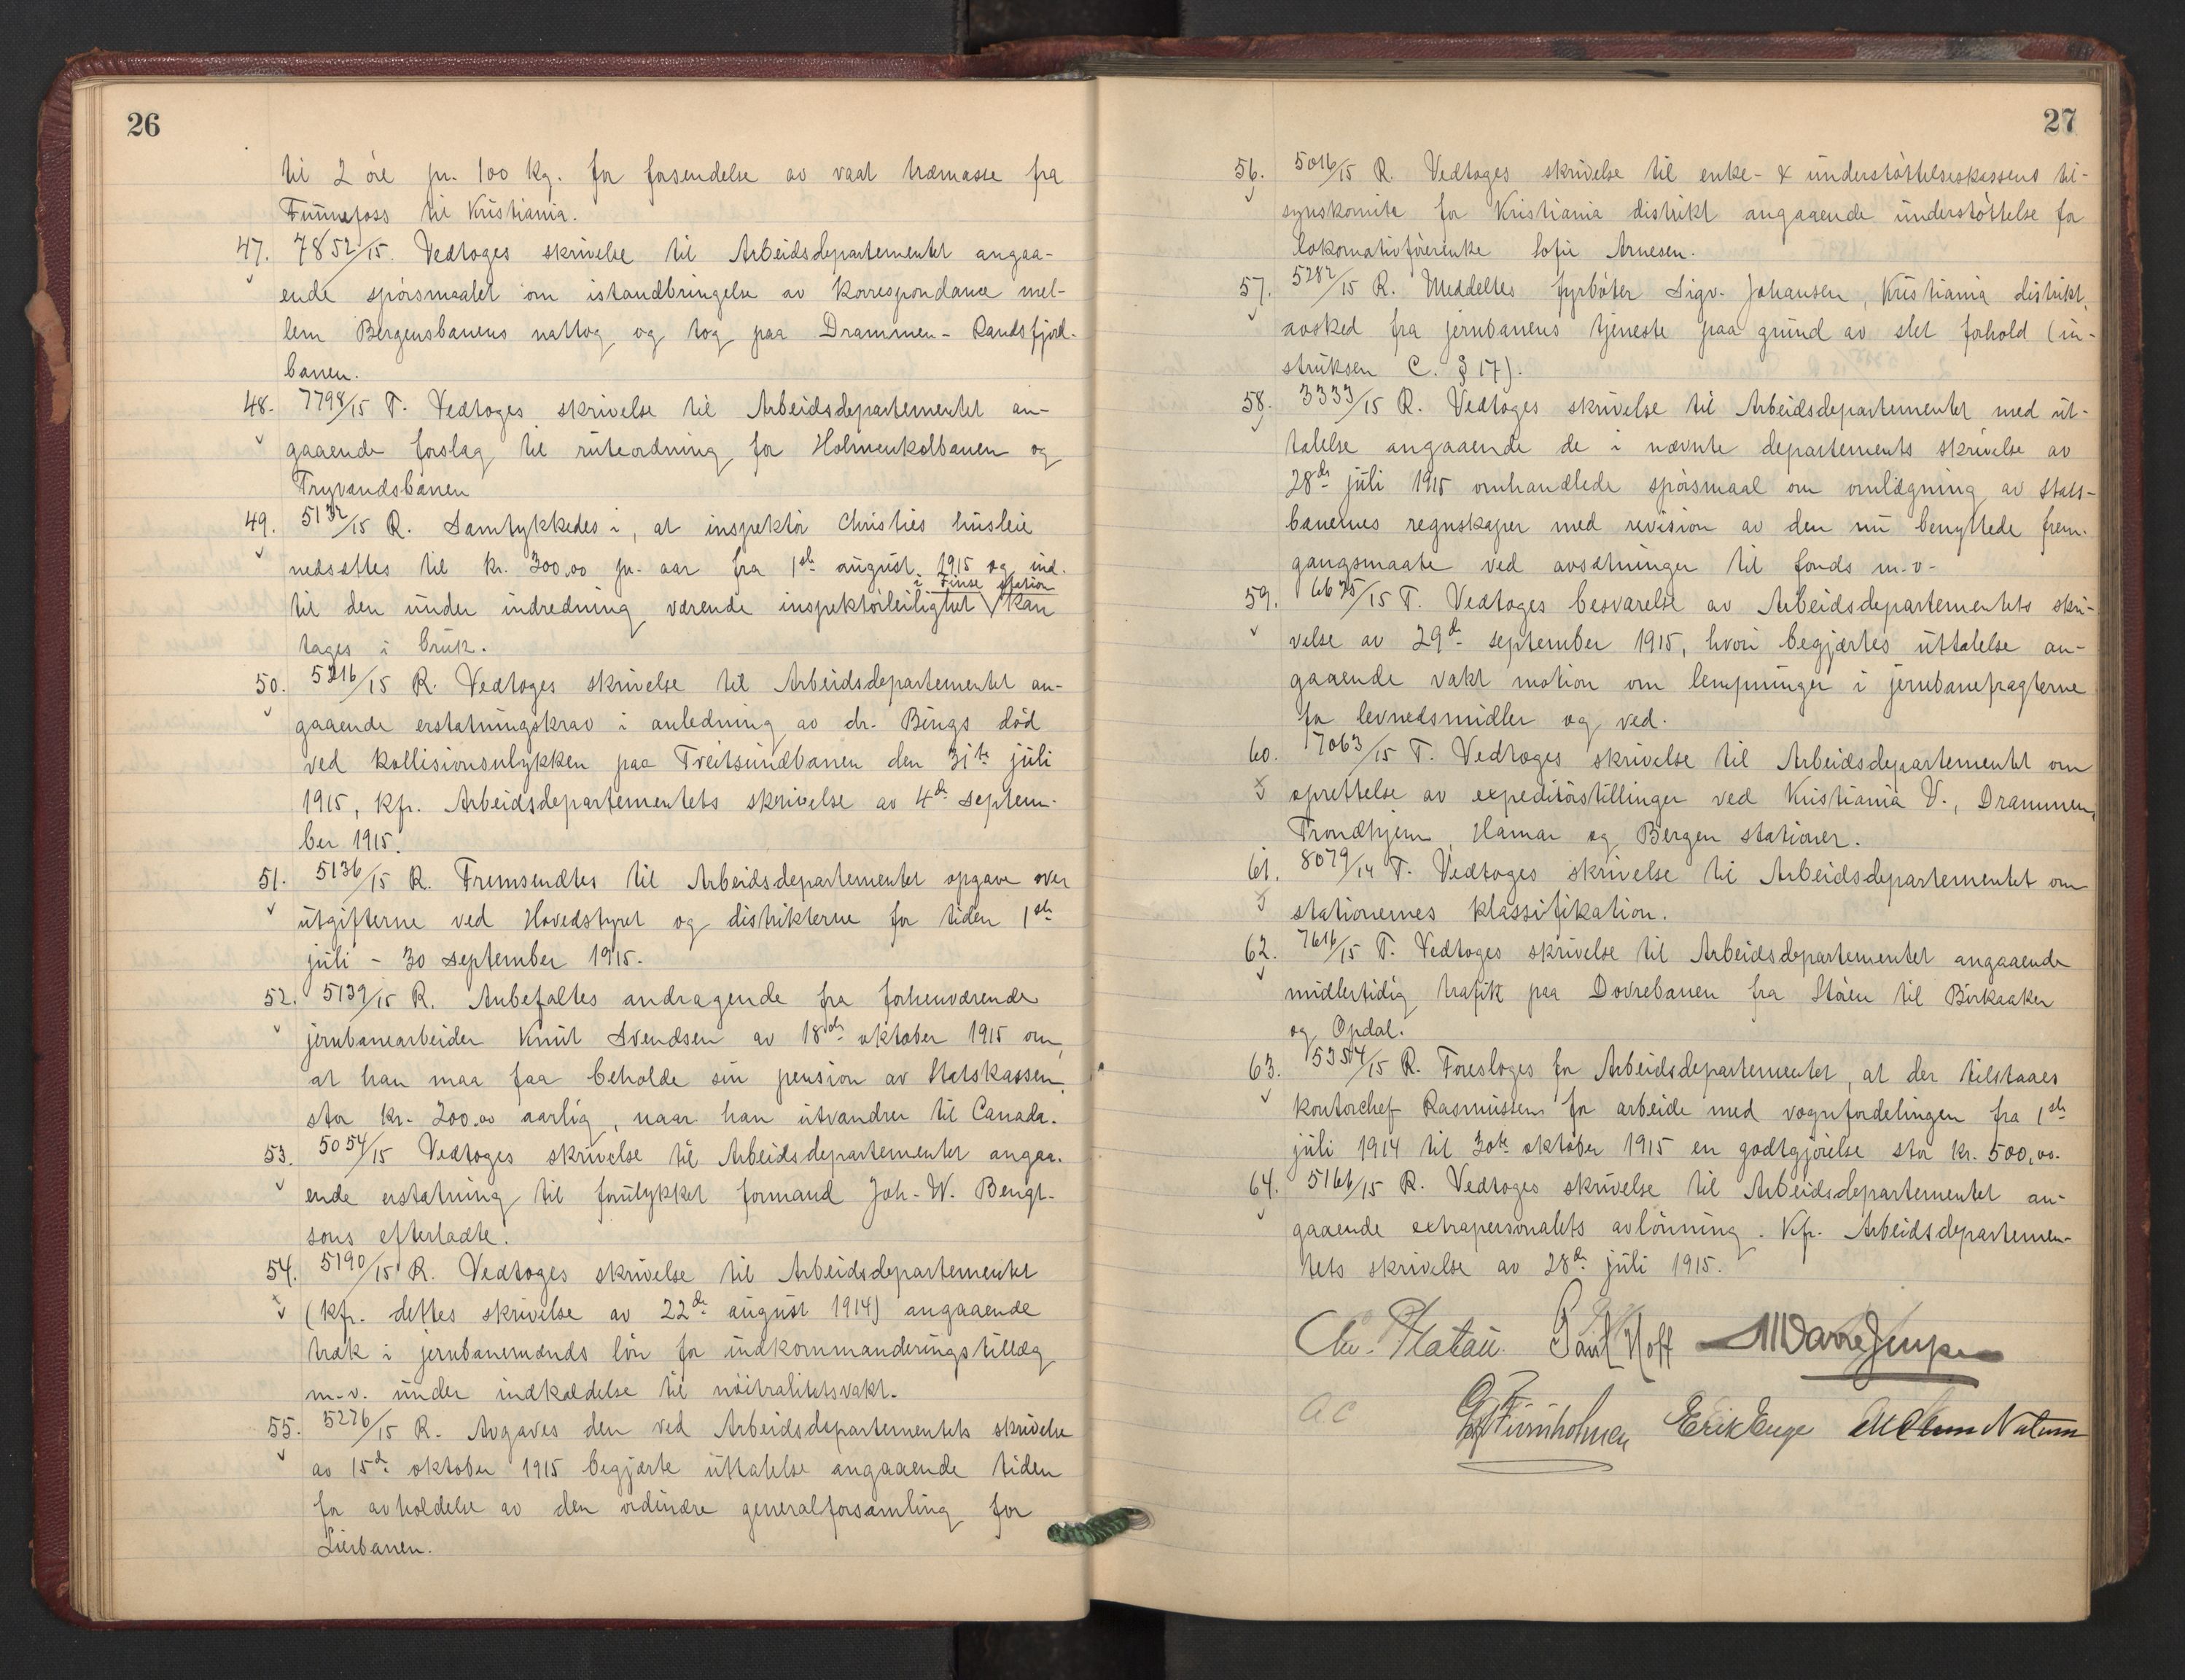 26
til 2 øre pr. 100 kg. for forsendelse av vaat træmasse fra
Funnefoss til Kristiania.
47. 7852/15. Vedtoges skrivelse til Arbeidsdepartementet angaa-
ende spørsmaalet om istandbringelse av korrespondance mel-
lem Bergensbanens nattog og tog paa Drammen - Randsfjord-
banen.
48. 7798/15 T. Vedtoges skrivelse til Arbeidsdepartementet an-
gaaende forslag til ruteordning for Holmenkolbanen og
Tryvandsbanen
49. 5132/15 R. Samtykkedes i, at inspektør Christies husleie
nedsættes til kr. 300.00 pr. aar fra 1ste august 1915 og ind-
i Finse station
til den under indredning værende inspektørleilighet kan
tages i bruk.
50. 5216/15 R. Vedtoges skrivelse til Arbeidsdepartementet an-
gaaende erstatningskrav i anledning av dr. Bings død
ved kollisionsulykken paa Treitsundbanen den 31te juli
1915, kfr. Arbeidsdepartementets skrivelse av 4de septem-
ber 1915.
51. 5136/15 R. Fremsendtes til Arbeidsdepartementet opgave over
utgifterne ved Hovedstyret og distrikterne for tiden 1ste
juli - 30 september 1915.
52. 5139/15 R. Anbefaltes andragende fra forhenværende
jernbanearbeider Knut Svendsen av 18de oktober 1915 om,
at han maa faa beholde sin pension av Statskassen,
stor kr. 200.00 aarlig, naar han utvandrer til Canada.
53. 5054/15 Vedtoges skrivelse til Arbeidsdepartementet angaa-
ende erstatning til forulykket formand Joh. W. Bengt-
sons efterladte.
54. 5190/15 R. Vedtoges skrivelse til Arbeidsdepartementet
(kfr. dettes skrivelse av 22de august 1914) angaaende
træk i jernbanemænds løn for indkommanderingstillæg
m.v. under indkaldelse til nøitralitetsvakt.
55. 5276/15 R. Avgaves den ved Arbeidsdepartementets skrivelse
av 15de oktober 1915 begjærte uttalelse angaaende tiden
for avholdelse av den ordinære generalforsamling for
Lierbanen.
27
56. 5016/15 R. Vedtoges skrivelse til enke- & understøttelseskassens til-
synskomite for Kristiania distrikt angaaende understøttelse for
lokomotivførerenke Sofie Arnesen.
57. 5282/15 R. Meddeltes fyrbøter Sigv. Johansen, Kristiania distrikt,
avsked fra jernbanens tjeneste paa grund av slet forhold (in-
struksen C. § 17).
58. 3333/15 R. Vedtoges skrivelse til Arbeidsdepartementet med ut-
talelse angaaende de i nævnte departements skrivelse av
28de juli 1915 omhandlede spørsmaal om omlægning av Stats-
banernes regnskaper med revision av den nu benyttede frem-
gangsmaate ved avsætninger til fonds m.v.
59. 6675/15 T. Vedtoges besvarelse av Arbeidsdepartementets skri-
velse av 29de september 1915, hvori begjærtes uttalelse an-
gaaende vakt motion om lempninger i jernbanefragterne
for levnedsmidler og ved.
60. 7063/15 T. Vedtoges skrivelse til Arbeidsdepartementet om
oprettelse av expeditørstillinger ved Kristiania V., Drammen,
Trondhjem, Hamar og Bergen stationer.
61. 8079/14 T. Vedtoges skrivelse til Arbeidsdepartementet om
stationernes klassifikation.
62. 7616/15 T. Vedtoges skrivelse til Arbeidsdepartementet angaaende
midlertidig trafik paa Dovrebanen fra Støren til Birkaaker
og Opdal.
63. 5354/15 R. Foresloges for Arbeidsdepartementet, at der tilstaaes
kontorchef Rasmussen for arbeide med vognfordelingen fra 1ste
juli 1914 til 30te oktober 1915 en godtgjørelse stor kr. 500,00.
64. 5166/15 R. Vedtoges skrivelse til Arbeidsdepartementet an-
gaaende extrapersonalets avlønning. Kfr. Arbeidsdepartemen-
tets skrivelse av 28de juli 1915.
Chr. Platou. Paul Hoff
A.C Furuholmen Erik Enge